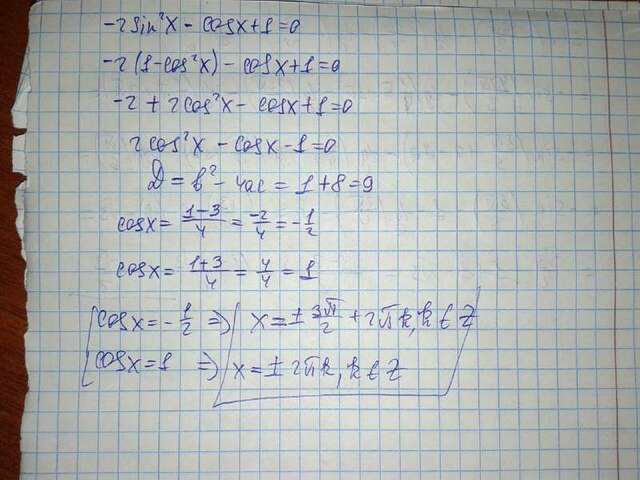 -2sin²x - cosx+1=0
-2(1-cos²x) - cosx+1=0
-2+2cos²x - cosx+1=0
2cos²x - cosx-1=0
D = b² - 4ac = 1+8=9
cosx= (1-3)/4 = -2/4 = -1/2
cosx= (1+3)/4 = 4/4 = 1
cosx=-1/2 => x=± 3π/2 +2πk, k∈Z
cosx=1 => x=± 2πk, k∈Z